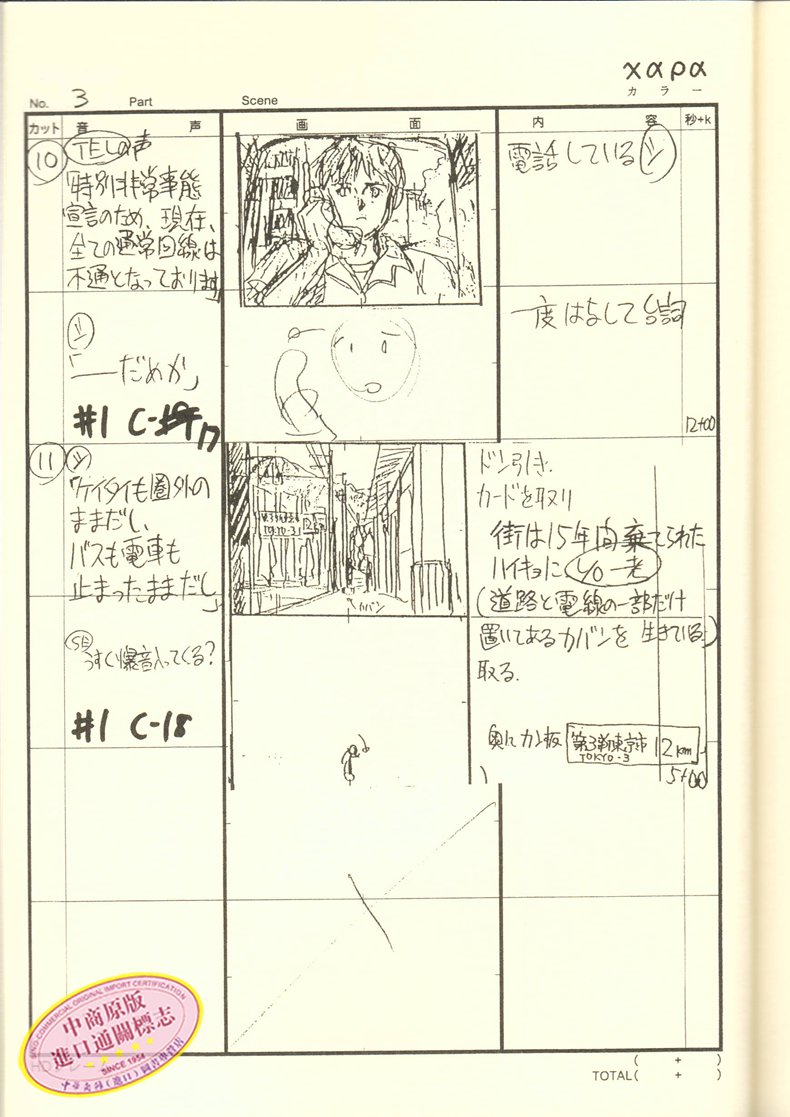 χαρα
カラー
No. 3 Part Scene
カット 音 声 画 面 内 容 秒+k
10
TELの声
「特別非常事態
宣言のため、現在、
全ての通常回線は
不通となっております」
電話しているシ
シ
「――だめか」
一度はなして台詞
#1 C-17
12+00
11
シ
「ケイタイも圏外の
ままだし、
バスも電車も
止まったままだし」
SE
うすく爆音入ってくる?
#1 C-18
第3新東京市 12km
TOKYO-3
カバン
ドン引き.
カードを取り
街は15年間棄てられた
ハイキョに
(道路と電線の一部だけ
生きている)
置いてあるカバンを
取る.
奥にカン板 第3新東京市 12km
TOKYO-3
5+00
( + )
TOTAL( + )
SINO-COMMERCIAL ORIGINAL IMPORT CERTIFICATION
中商原版
進口通關標志
SINCE 1954